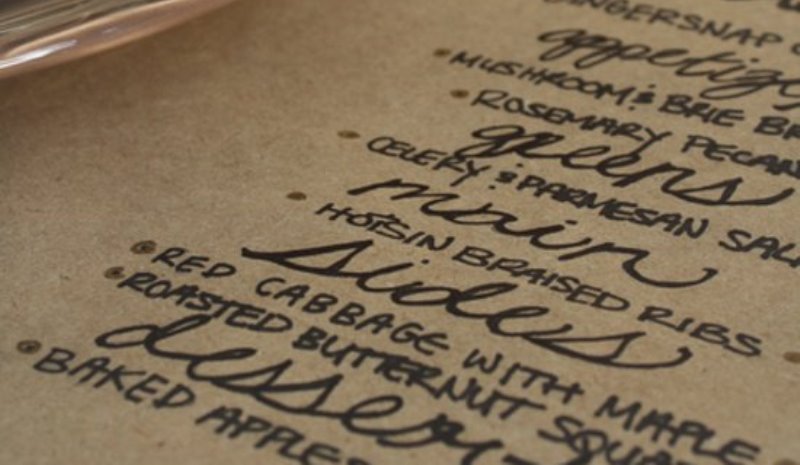 GINGERSNAP
appetiz
MUSHROOM & BRIE BR
ROSEMARY PECAN
greens
CELERY & PARMESAN SAL
main
HOISIN BRAISED RIBS
sides
RED CABBAGE WITH MAPLE
ROASTED BUTTERNUT SQUA
desser
BAKED APPLES